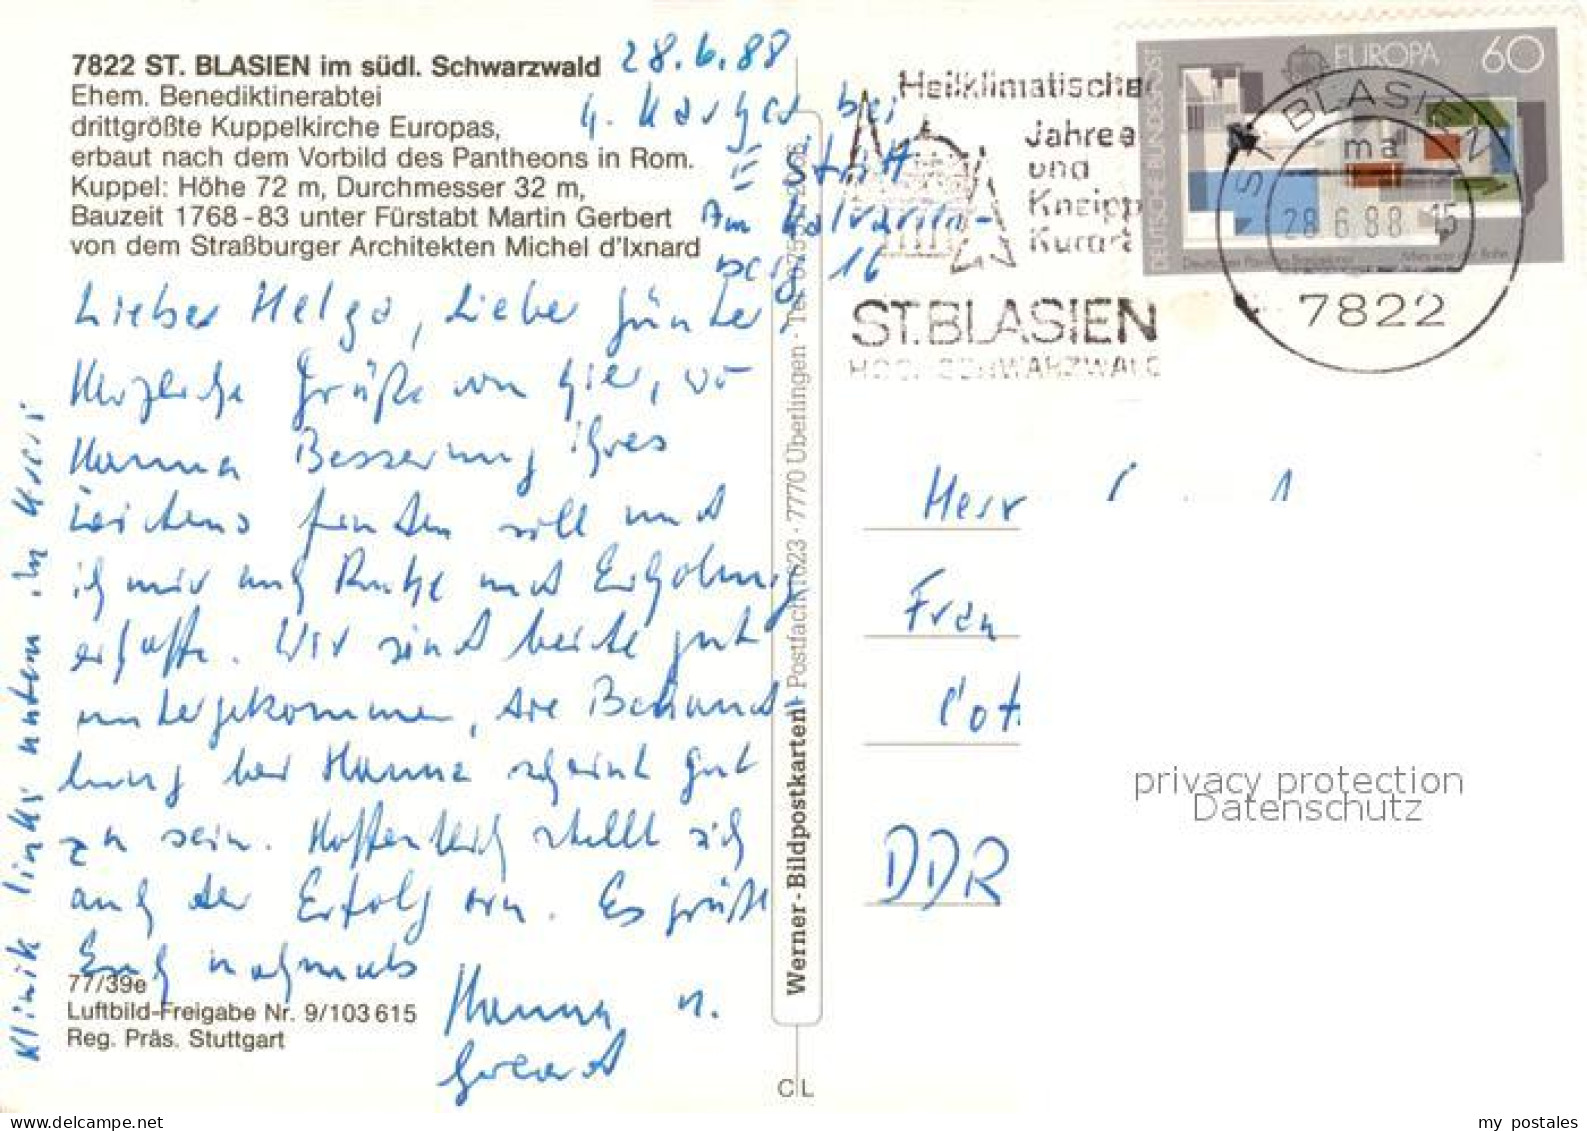 7822 ST. BLASIEN im südl. Schwarzwald
Ehem. Benediktinerabtei
drittgrößte Kuppelkirche Europas,
erbaut nach dem Vorbild des Pantheons in Rom.
Kuppel: Höhe 72 m, Durchmesser 32 m,
Bauzeit 1768-83 unter Fürstabt Martin Gerbert
von dem Straßburger Architekten Michel d'Ixnard
28.6.88
bei
Stritt
Am Kalvarien-
berg 16
Lieber Helga, Lieber Günter,
Herzliche Grüße von hier, wo
Hanna Besserung ihres
Leidens finden soll und
ich mir auch Ruhe und Erholung
erhoffe. Wir sind beide gut
untergekommen, die Behand
lung bei Hanna scheint gut
zu sein. Hoffentlich stellt sich
auch der Erfolg ein. Es grüßt
Euch nochmals
Hanna u.
Klinik links unten im Kreis
77/39e
Luftbild-Freigabe Nr. 9/103 615
Reg. Präs. Stuttgart
Werner-Bildpostkarten · Postfach 1623 · 7770 Überlingen · Tel.
C L
Heilklimatischer
Jahres
und
Kneipp
Kurort
ST. BLASIEN
HOCHSCHWARZWALD
DEUTSCHE BUNDESPOST
EUROPA 60
Deutscher Pavillon Barcelona
Mies van der Rohe
ST. BLASIEN
ma
28.6.88-15
7822
Herr
Frau
DDR
privacy protection
Datenschutz
www.delcampe.net
my_postales